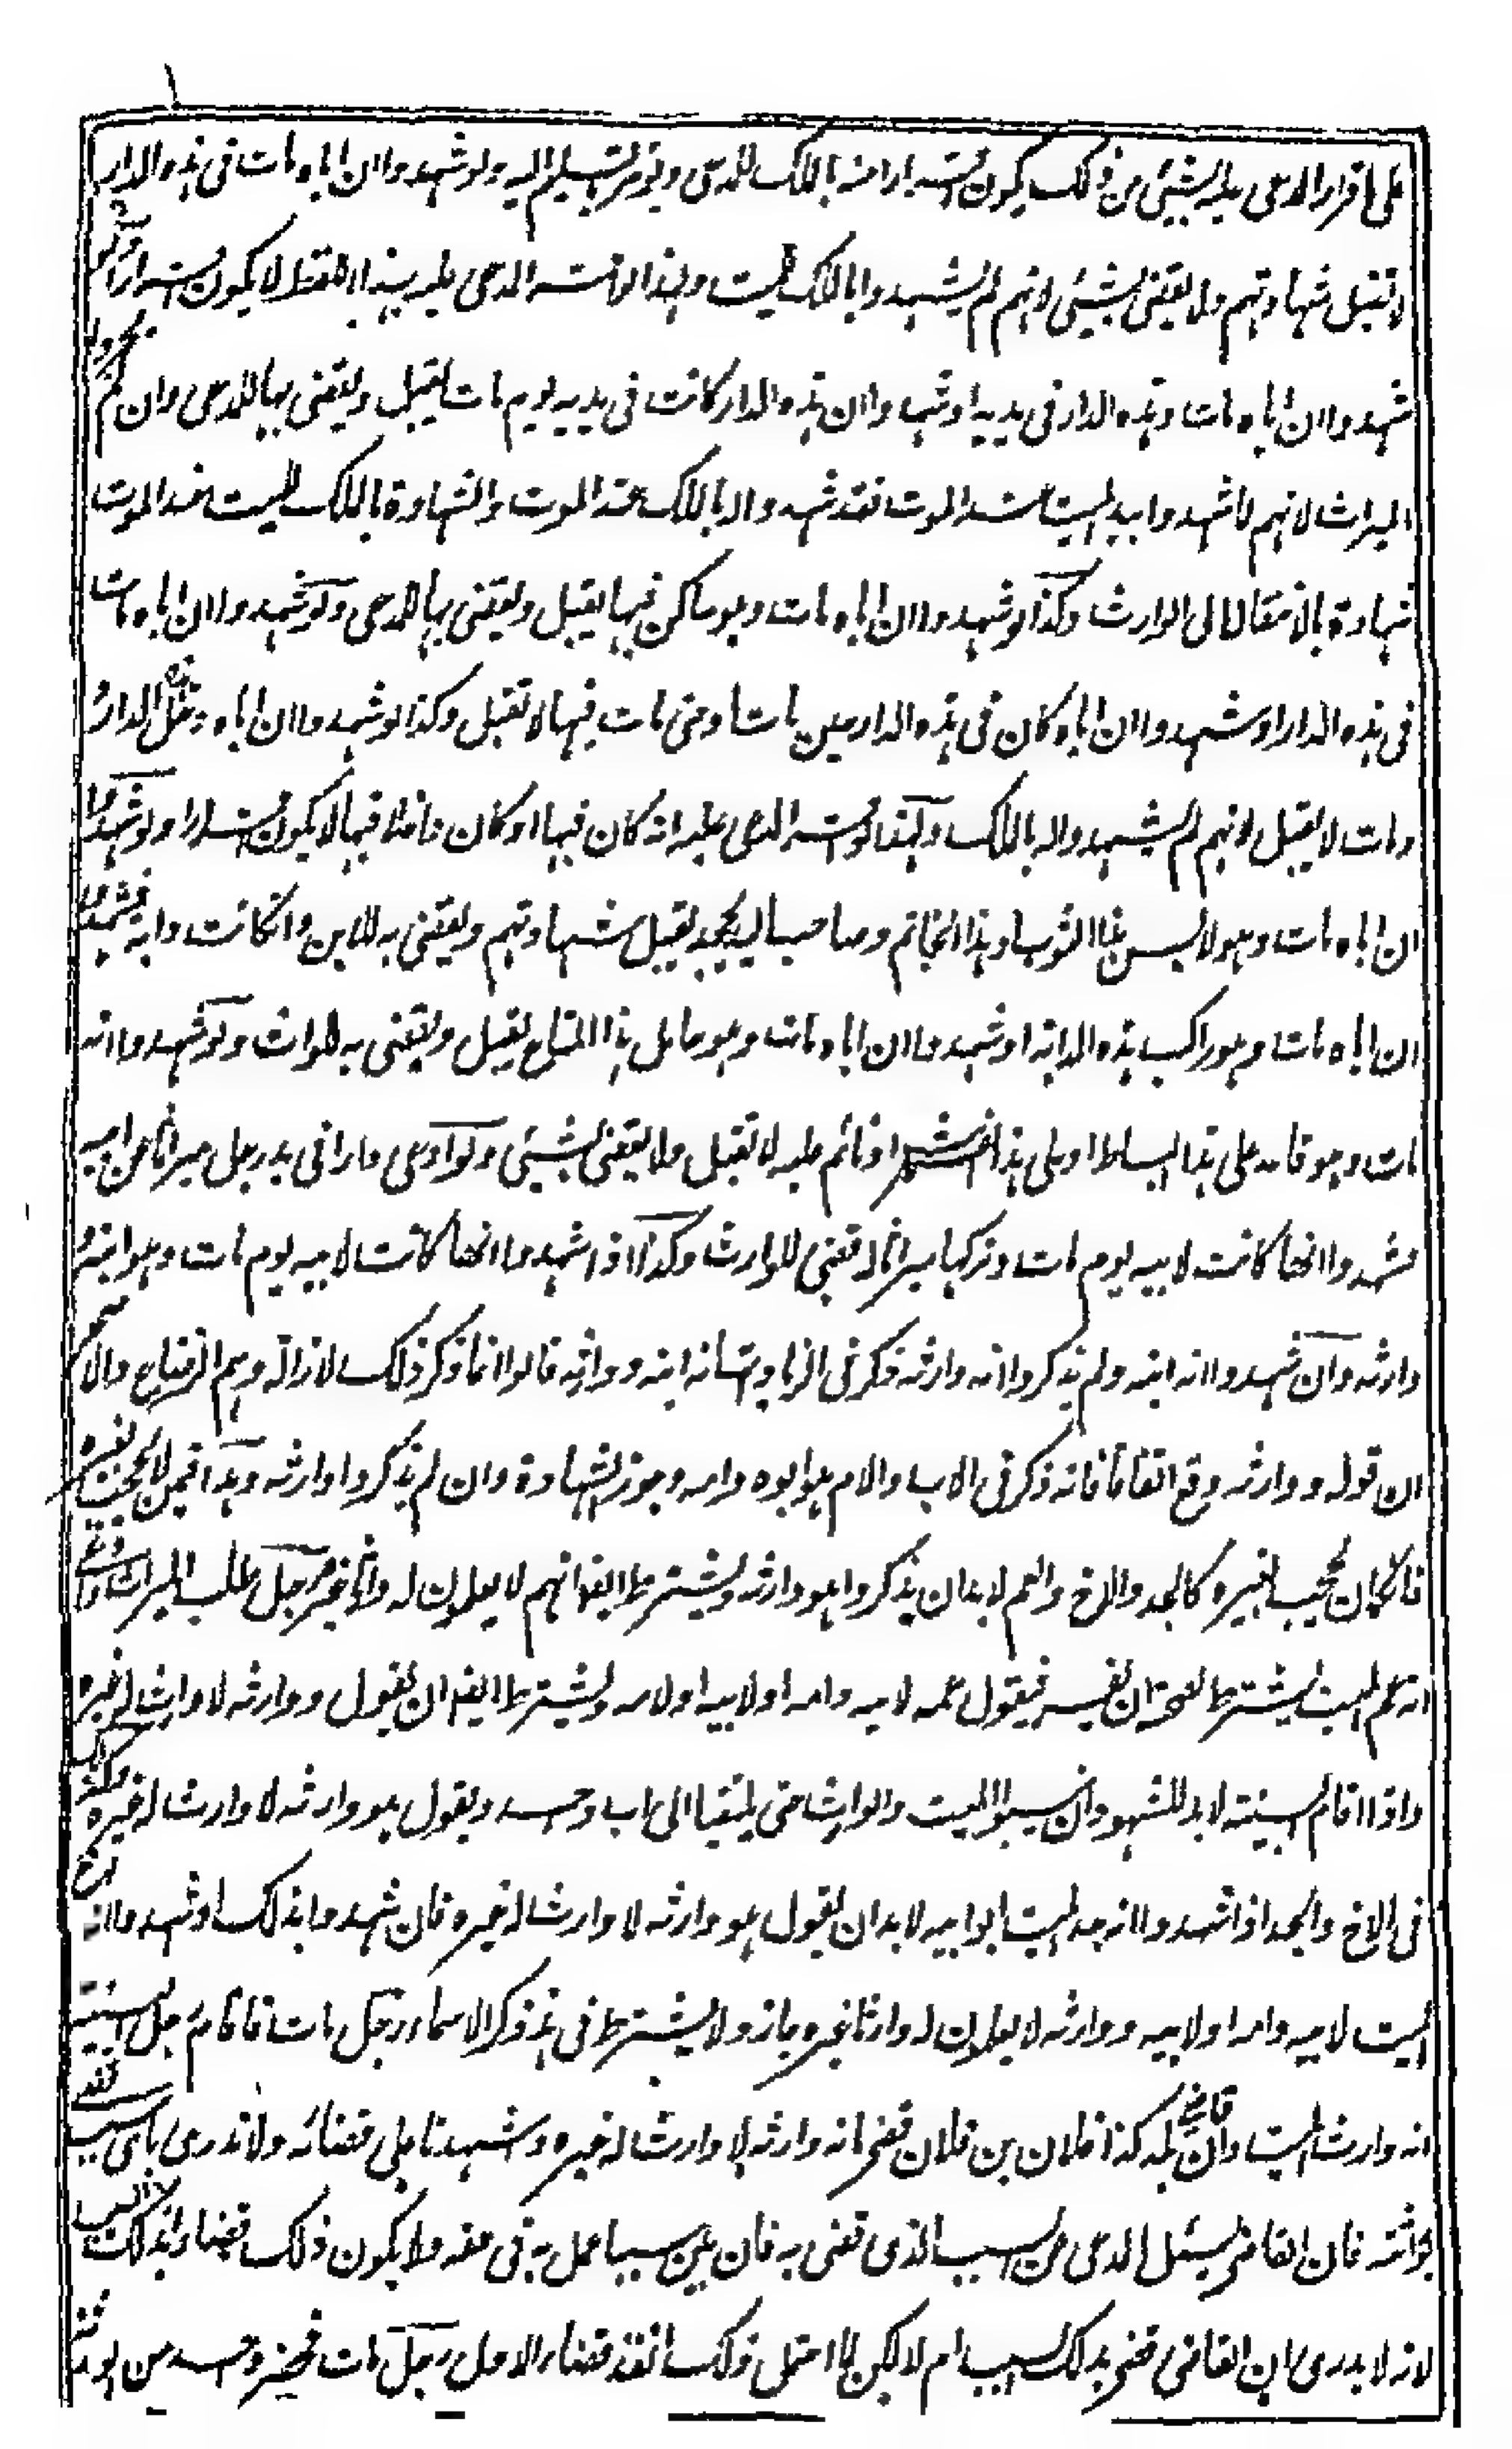 على اقرار المدعى عليه بشيئ من ذلك يكون اقرارا منه بالملك للمدعى ويؤمر بالتسليم اليه ولو شهدوا ان اباه مات فى هذه الدار
لا تقبل شهادتهم ولا يقضى بشيئ لانهم لم يشهدوا بالملك للميت ولهذا لو اقر المدعى عليه بهذا اللفظ لا يكون اقرارا ولو
شهدوا ان اباه مات وهذه الدار فى يديه او شهدوا ان هذه الدار كانت فى يديه يوم مات يقبل ويقضى بها للمدعى وان لم يجروا
الميراث لانهم لما شهدوا بيد الميت عند الموت فقد شهدوا له بالملك عند الموت والشهادة بالملك للميت عند الموت
شهادة بالانتقال الى الوارث وكذا لو شهدوا ان اباه مات وهو ساكن فيها يقبل ويقضى بها للمدعى ولو شهدوا ان اباه مات
فى هذه الدار او شهدوا ان اباه كان فى هذه الدار حين مات او حتى مات فيها لا تقبل وكذا لو شهدوا ان اباه دخل هذه الدار
ومات لا يقبل لانهم لم يشهدوا له بالملك ولهذا لو اقر المدعى عليه انه كان فيها او كان داخلا فيها لا يكون اقرارا ولو شهدوا
ان اباه مات وهو لابس هذا الثوب او هذا الخاتم وصاحب اليد يجحد يقبل شهادتهم ويقضى به للابن وان كانت دابة فشهدوا
ان اباه مات وهو راكب هذه الدابة او شهدوا ان اباه مات وهو حامل هذا المتاع يقبل ويقضى به للوارث ولو شهدوا انه
مات وهو قاعد على هذا البساط او على هذا الفراش او نائم عليه لا تقبل ولا يقضى بشيئ ولو ادعى دارا فى يد رجل ميراثا من ابيه
فشهدوا انها كانت لابيه يوم مات وتركها ميراثا له قضى للوارث وكذا اذا شهدوا انها كانت لابيه يوم مات وهو ابنه و
وارثه وان شهدوا انه ابنه ولم يذكروا انه وارثه ذكر فى الزيادات انه ابنه ووارثه قالوا انما ذكر ذلك لازالة وهم الرضاع والاصح
ان قوله ووارثه وقع اتفاقا فانه ذكر فى الاب والام هو ابوه وامه وجوز الشهادة وان لم يذكروا وارثه وهذا فيمن لا يحجب بغيره
فان كان يحجب بغيره كالجد والاخ والعم لا بد ان يذكروا هو وارثه ويشترط ايضا انهم لا يعلمون له وارثا غيره رجل طلب الميراث وادعى
انه عم الميت يشترط لصحته ان يفسر فيقول عمه لابيه وامه او لابيه او لامه ويشترط ايضا ان يقول ووارثه لا وارث له غيره
واذا اقام البينة لا بد للشهود ان ينسبوا الميت والوارث حتى يلتقيا الى اب واحد ويقول هو وارثه لا وارث له غيره وكذلك
فى الاخ والجد اذا شهدوا انه جد الميت ابو ابيه لا بد ان يقول هو وارثه لا وارث له غيره فان شهدوا بذلك او شهدوا انه اخ
الميت لابيه وامه او لابيه ووارثه لا يعلمون له وارثا غيره جاز ولا يشترط فى هذا ذكر الاسماء رجل مات فاقام رجل البينة
انه وارث الميت وان قاضى بلد كذا فلان بن فلان قضى بانه وارثه لا وارث له غيره واشهدنا على قضائه ولا ندرى باى سبب قضى
بوراثته فان القاضى يسئل المدعى عن السبب الذى قضى به فان بين سببا عمل به فى حقه ولا يكون ذلك قضاء بذلك السبب
لانه لا يدرى ان القاضى قضى بذلك السبب ام لا لكن لما احتمل ذلك انفذ قضاء الاول رجل مات فحضر واحد من